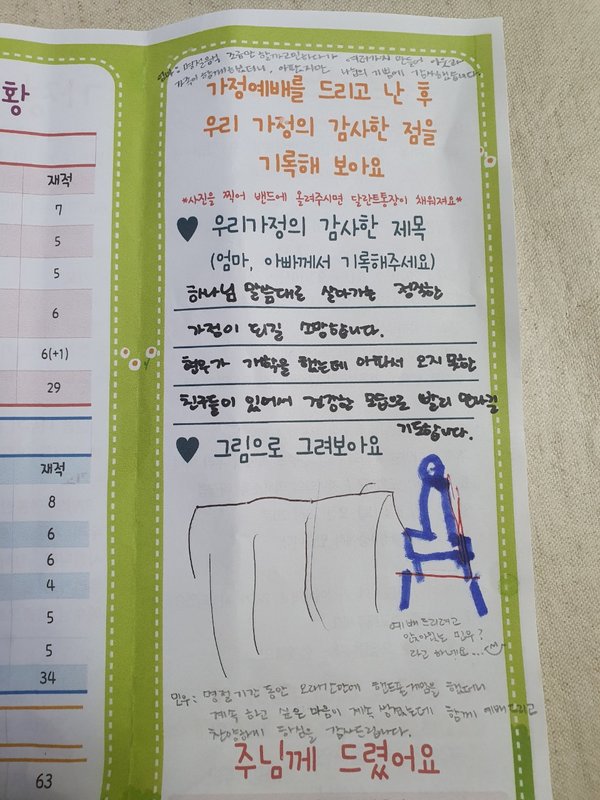 황
재적
7
5
5
6
6(+1)
29
재적
8
6
6
4
5
5
34
63
엄마: 명절음식 조금만 할까 고민하다가 여러가지 만들어
가족이 함께 나눔의 기쁨에 감사했습니다
가정예배를 드리고 난 후
우리 가정의 감사한 점을
기록해 보아요
*사진을 찍어 밴드에 올려주시면 달란트통장이 채워져요*
♥ 우리가정의 감사한 제목
(엄마, 아빠께서 기록해주세요)
하나님 말씀대로 살아가는 정직한
가정이 되길 소망합니다.
형우가 개학을 했는데 아파서 오지 못한
친구들이 있어서 건강한 모습으로 빨리 만나길
기도합니다.
♥ 그림으로 그려보아요
예배드리려고
앉아있는 민우?
라고 하네요...
민우: 명절기간 동안 오래간만에 핸드폰게임을 했더니
계속 하고 싶은 마음이 계속 생겼는데 함께 예배드리고
찬양하게 하심을 감사드립니다.
주님께 드렸어요